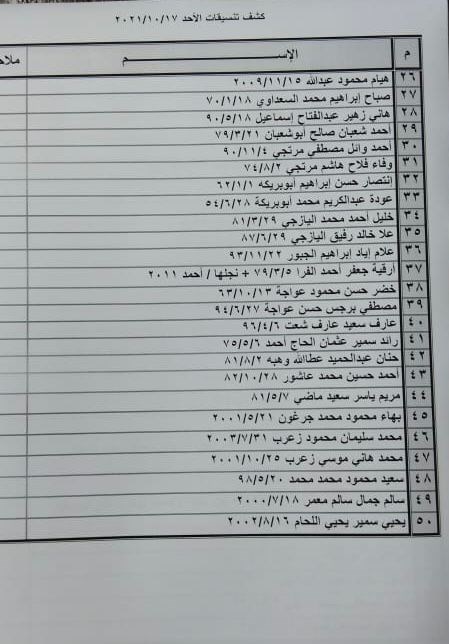 كشف تنسيقات الأحد ٢٠٢١/١٠/١٧
م الإســـــــــــــم ملاح
٢٦ هيام محمود عبدالله ٢٠٠٩/١١/١٥
٢٧ صباح إبراهيم محمد السعداوي ٧٠/١/١٨
٢٨ هاني زهير عبدالفتاح إسماعيل ٩٠/٥/١٨
٢٩ أحمد شعبان صالح أبوشعبان ٧٩/٣/٢١
٣٠ أحمد وائل مصطفي مرتجي ٩٠/١١/٤
٣١ وفاء فلاح هاشم مرتجي ٧٤/٨/٢
٣٢ إنتصار حسن إبراهيم أبوبريكه ٦٢/١/١
٣٣ عودة عبدالكريم محمد أبوبريكة ٥٤/٦/٢٨
٣٤ خليل أحمد محمد اليازجي ٨١/٣/٢٩
٣٥ علا خالد رفيق اليازجي ٨٧/٦/٢٩
٣٦ علام إياد إبراهيم الجبور ٩٣/١١/٢٢
٣٧ أرقية جعفر أحمد الفرا ٧٩/٣/٥ + نجلها / أحمد ٢٠١١
٣٨ خضر حسن محمود عواجة ٦٣/١٠/١٣
٣٩ مصطفي برجس حسن عواجة ٩٤/٦/٢٧
٤٠ عارف سعيد عارف شعت ٩٦/٤/٦
٤١ رائد سمير عثمان الحاج أحمد ٧٥/٥/٦
٤٢ حنان عبدالحميد عطاالله وهبه ٨١/٨/٢
٤٣ أحمد حسين محمد عاشور ٨٢/١٠/٢٨
٤٤ مريم ياسر سعيد ماضي ٨١/٥/٧
٤٥ بهاء محمود محمد جرغون ٢٠٠١/٥/٢١
٤٦ محمد سليمان محمود زعرب ٢٠٠٣/٧/٣١
٤٧ محمد هاني موسي زعرب ٢٠٠١/١٠/٢٥
٤٨ سعيد محمود محمد محمد ٩٨/٥/٢٠
٤٩ سالم جمال سالم معمر ٢٠٠٠/٧/١٨
٥٠ يحيي سمير يحيي اللحام ٢٠٠٢/٨/١٦